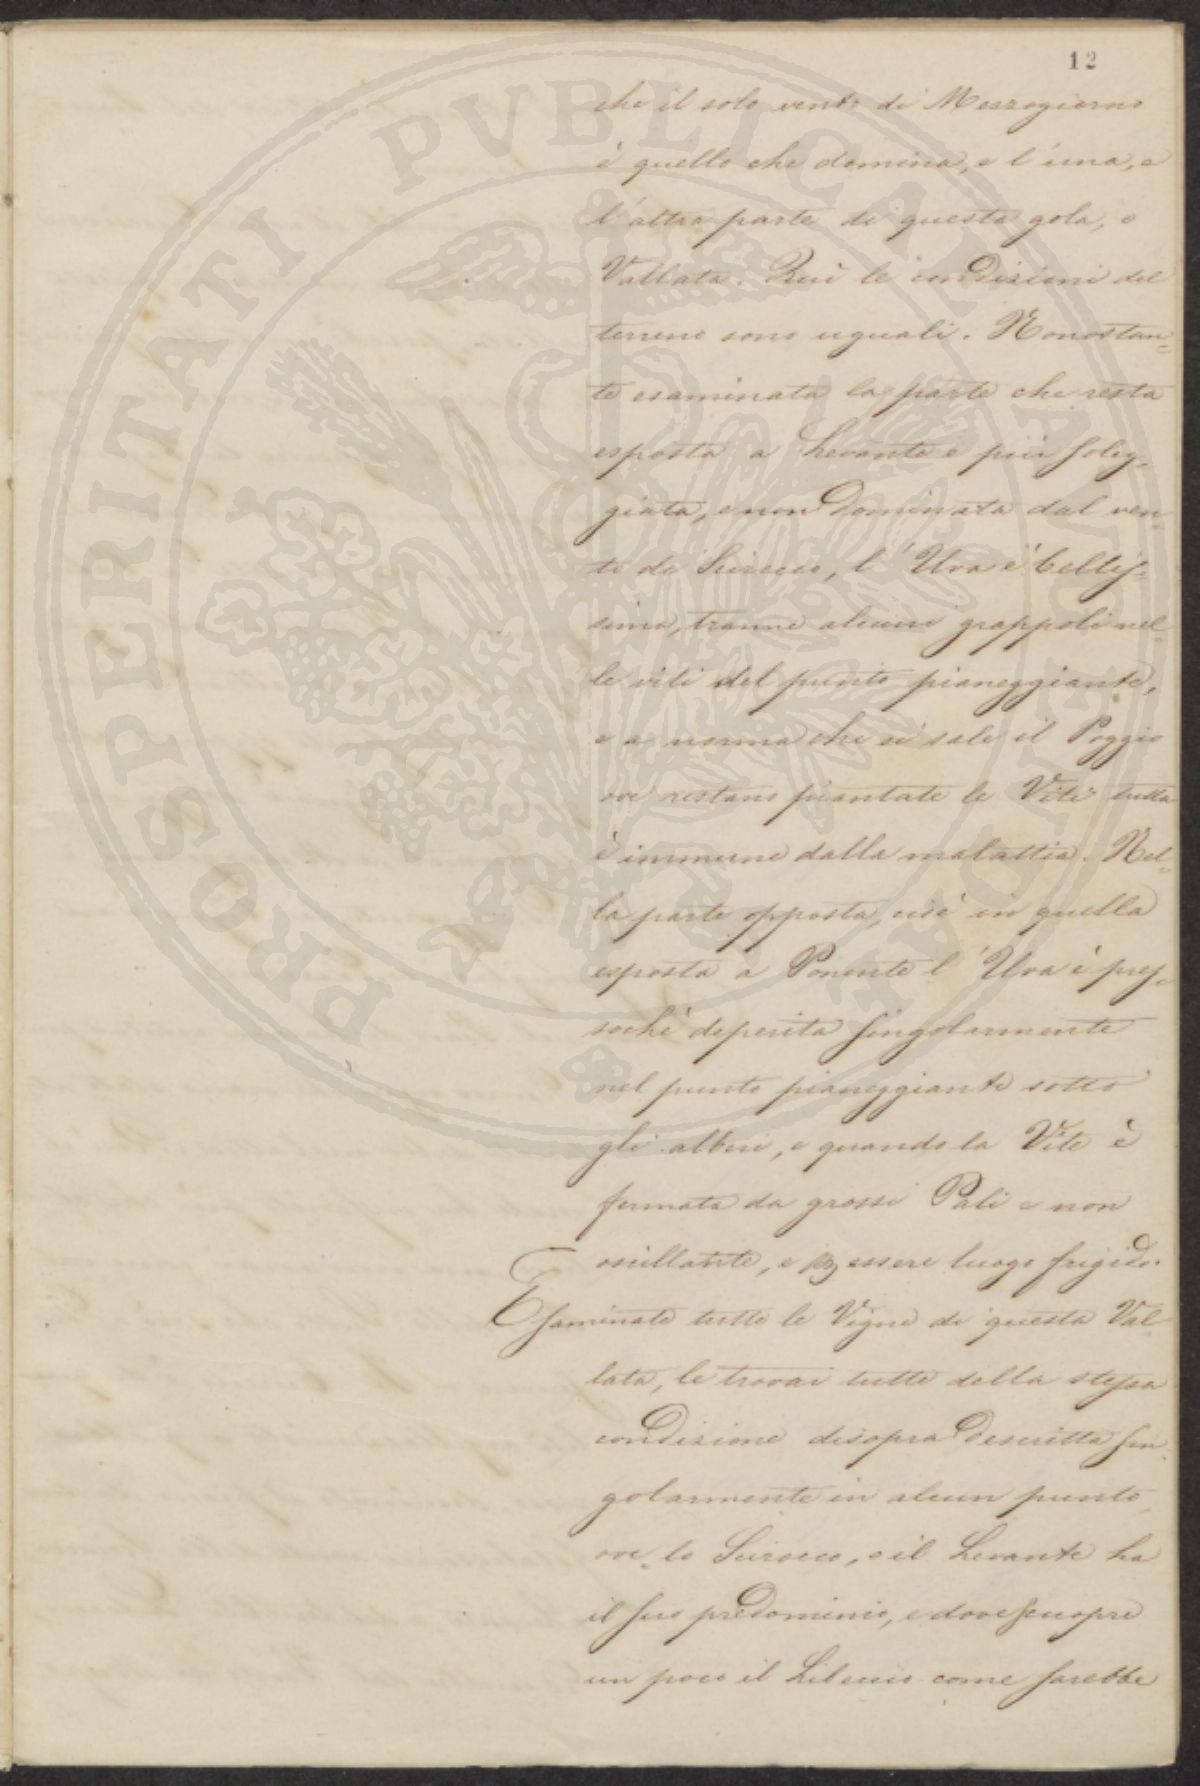 12
che il solo vento di Mezzogiorno
è quello che domina, e l'una, e
l'altra parte di questa gola, o
Vallata. Quì le condizioni del
terreno sono uguali. Nonostan=
te esaminata la parte che resta
esposta a Levante e più soleg=
giata, e non dominata dal ven=
to di Scirocco, l'Uva è bellis=
sima, tranne alcuni grappoli nel=
le viti del punto pianeggiante,
e a norma che si sale il Poggio
ove restano piantate le Viti tutta
è immune dalla malattia. Nel=
la parte opposta, cioè in quella
esposta a Ponente l'Uva è pres=
sochè deperita singolarmente
nel punto pianeggiante sotto
gli alberi, e quando la Vite è
fermata da grossi Pali e non
oscillante, e per essere luogo frigido.
Esaminate tutte le Vigne di questa Val=
lata, le trovai tutte della stessa
condizione disopra descritta sin=
golarmente in alcun punto
ove lo Scirocco, e il Levante ha
il suo predominio, e dove scuopre
un poco il Libeccio come sarebbe
PROSPERITATI PVBLICAE AVGENDAE